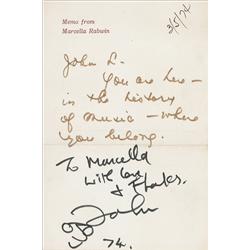 Memo from
Marcella Rabwin
3/5/74
John L.
You are here -
in the history
of music - where
you belong.
To Marcella
with love
+ thanks.
John
74.